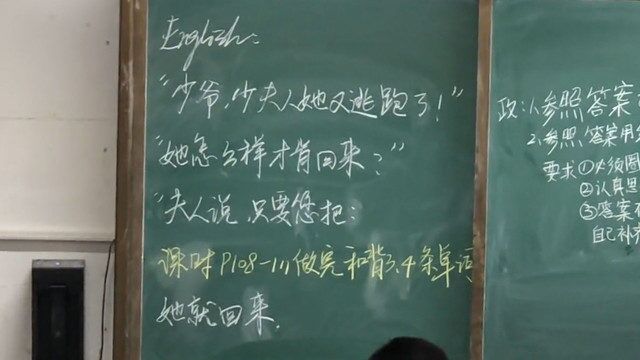 English:
“少爷,少夫人她又逃跑了!”
“她怎么样才肯回来?”
“夫人说,只要您把:
课时P108-111做完和背3.4条单词
她就回来.
政:1.参照答案
2.参照答案用
要求①必须
②认真思
③答案
自己补充